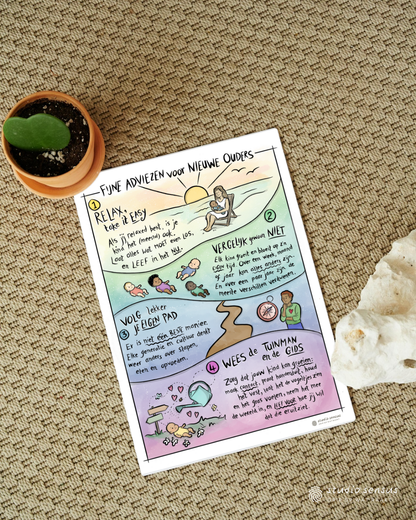 FIJNE ADVIEZEN voor NIEUWE OUDERS
1
RELAX,
take it EASY
Als jij relaxed bent, is je
kind het (meestal) ook.
Laat alles wat moet even LOS,
en LEEF in het NU.
2
VERGELIJK gewoon NIET
Elk kind groeit en bloeit op zijn
eigen tijd. Over een week, maand
of jaar kan alles anders zijn.
En over een paar jaar zijn de
meeste verschillen verdwenen.
VOLG lekker
3 JE EIGEN PAD
Er is niet één BESTE manier.
Elke generatie en cultuur denkt
weer anders over slapen,
eten en opvoeden.
4
WEES de TUINMAN
en de GIDS
Zorg dat jouw kind kan groeien:
maak contact, moet
het vast, laat het de vogeltjes zien
en het gras voelen, neem het mee
de wereld in, en leef voor hoe jij wil
dat die eruitziet.
studio sensus
studio sensus